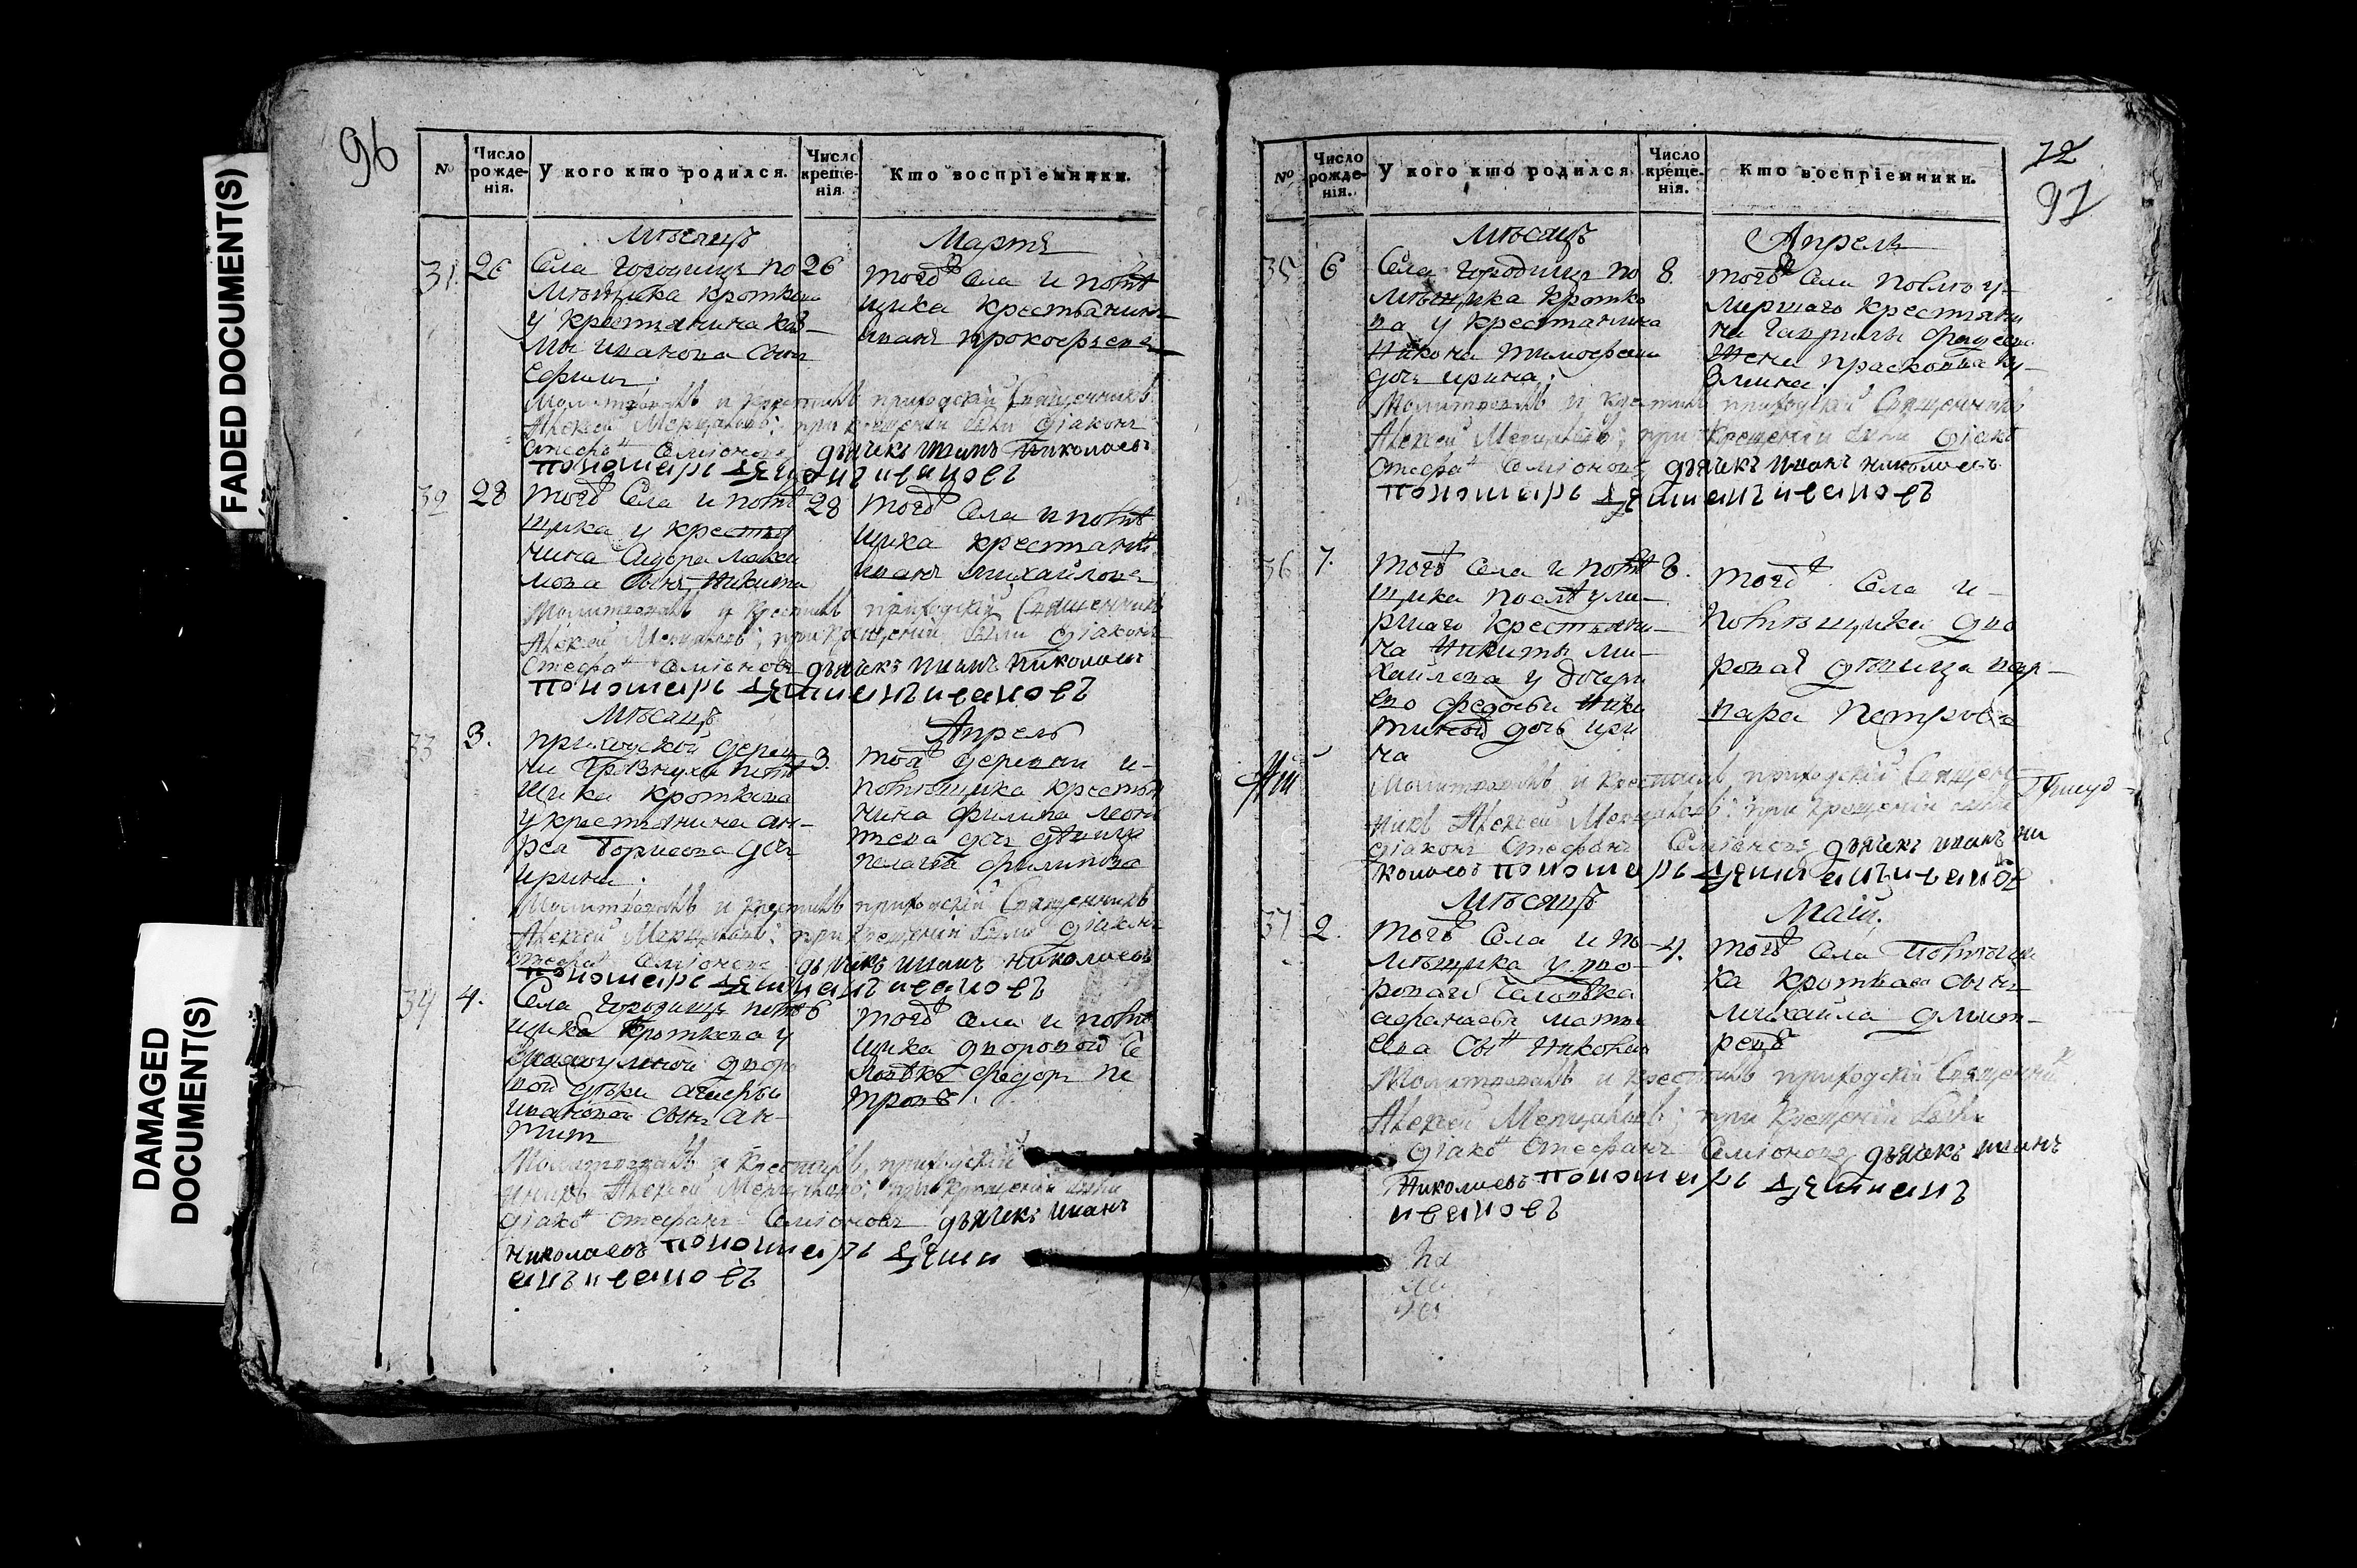 FADED DOCUMENT(S)
DAMAGED DOCUMENT(S)
96
№
Число рожде- нія.
У кого кто родился.
Число креще- нія.
Кто воспріемники.
Мѣсяцъ Мартъ
31 26
Села городищъ по
мѣщика кроткова
у крестьянина
мы иванова сынъ
ефимъ.
26
тогоѣ села и помѣ
щика крестьянинъ
иванъ прокофьевъ
Молитвовалъ и крестилъ приходскій Священникъ
Алексей Мерцаловъ; при крещеніи были діаконъ
стефанъ Семіоновъ дьячекъ иванъ николаевъ
пономарь иванов
32 28
того села и помѣ
щика у крестья
нина сидора макси
мова сынъ никита
28
того села и помѣ
щика крестьянинъ
иванъ михайловъ
Молитвовалъ и крестилъ приходскій Священникъ
Алексей Мерцаловъ; при крещеніи были діаконъ
стефанъ Семіоновъ дьячекъ иванъ николаевъ
пономарь ивановъ
Мѣсяцъ Апрель
33 3.
приходской дерев
ни помѣ
щика кроткова
у крестьянина ан-
рея борисова дочь
ирина.
3.
той деревни и-
помѣщика крестья
нина филипа леонь
тева дочь дѣвица
пелагѣя филипова
Молитвовалъ и крестилъ приходскій Священникъ
Алексей Мерцаловъ; при крещеніи были діаконъ
стефанъ Семіоновъ дьячекъ иванъ николаевъ
пономарь ивановъ
34 4.
Села городищъ помѣ
щика кроткова у
дворо
вой
ивановой сынъ ан-
тип
6
того села и помѣ
щика дворовой че
ловѣкъ федор пе
тровъ.
Молитвовалъ и крестилъ приходскій
нникъ Алексей Мерцаловъ; при крещеніи были
діаконъ стефанъ Семіоновъ дьячекъ иванъ
николаевъ пономарь
ивановъ
72
97
№
Число рожде- нія.
У кого кто родился
Число креще- нія.
Кто воспріемники.
Мѣсяцъ Апрель
35 6
Села городищъ по
мѣщика кротко
ва у крестьянина
никона тимофеева
дочь ирина.
8.
того села
мершаго крестьяни
на гаврилы фадеева
жена прасковья ку-
змина.
Молитвовалъ и крестилъ приходскій Священникъ
Алексей Мерцаловъ; при крещеніи были діако
стефанъ Семіоновъ дьячекъ иванъ николаевъ
пономарь ивановъ
36 7.
того села и помѣ
щика послѣ уме-
ршаго крестьяни-
на никиты ми-
хайлова у дочери
ево федосьи ники
тиной дочь ири
на
8.
того села и-
помѣщика дво
ровая дѣвица вар-
вара петрова
Молитвовалъ и крестилъ приходскій Священ
никъ Алексей Мерцаловъ: при крещеніи были
діаконъ стефанъ Семіоновъ дьячекъ иванъ ни
колаевъ пономарь ивановъ
Мѣсяцъ Маій.
37 2.
того села и по-
мѣщика у дво-
роваго человѣка
афанасья матве
ева сынъ никонъ
4.
того села помѣщи
ка кроткова сынъ
михайла дмит-
ревъ
Молитвовалъ и крестилъ приходскій Священникъ
Алексей Мерцаловъ; при крещеніи были
діаконъ стефанъ Семіоновъ дьячекъ иванъ
николаевъ пономарь
ивановъ